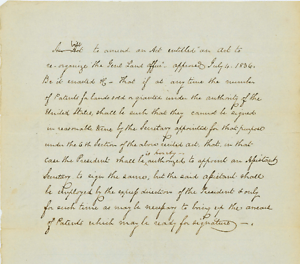 An Act to amend an Act entitled "an act to
re-organize the Genl Land Office" approved July 4. 1836.
Be it enacted &c - That if at any time the number
of Patents for lands sold or granted under the authority of the
United States, shall be such that they cannot be signed
in reasonable time by the Secretary appointed for that purpose
under the 6th Section of the above recited act. that, in that
case the President shall be authorized to appoint an Assistant
Secretary to sign the same, but the said assistant shall
be employed by the express direction of the President & only
for such time as may be necessary to bring up the arrears
of Patents which may be ready for signature.